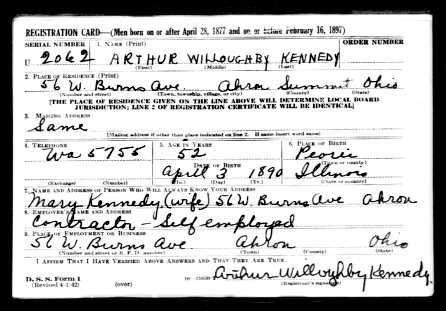 REGISTRATION CARD—(Men born on or after April 28, 1877 and on or before February 16, 1897)
SERIAL NUMBER 1. NAME (Print) ORDER NUMBER
U 2062 ARTHUR WILLOUGHBY KENNEDY
(First) (Middle) (Last)
2. PLACE OF RESIDENCE (Print)
56 W. Burns Ave. Akron Summit Ohio
(Number and street) (Town, township, village, or city) (County) (State)
[THE PLACE OF RESIDENCE GIVEN ON THE LINE ABOVE WILL DETERMINE LOCAL BOARD
JURISDICTION; LINE 2 OF REGISTRATION CERTIFICATE WILL BE IDENTICAL]
3. MAILING ADDRESS
Same
[Mailing address if other than place indicated on line 2. If same insert word same]
4. TELEPHONE 5. AGE IN YEARS 6. PLACE OF BIRTH
Wa 5755 52 Peoria
DATE OF BIRTH (Town or county)
April 3 1890 Illinois
(Exchange) (Number) (Mo.) (Day) (Yr.) (State or country)
7. NAME AND ADDRESS OF PERSON WHO WILL ALWAYS KNOW YOUR ADDRESS
Mary Kennedy (wife) 56 W. Burns Ave Akron
8. EMPLOYER'S NAME AND ADDRESS
Contractor - Self employed
9. PLACE OF EMPLOYMENT OR BUSINESS
56 W. Burns Ave. Akron Ohio
(Number and street or R. F. D. number) (Town) (County) (State)
I AFFIRM THAT I HAVE VERIFIED ABOVE ANSWERS AND THAT THEY ARE TRUE.
D. S. S. Form 1
(Revised 4-1-42) (over) Arthur Willoughby Kennedy
(Registrant's signature)